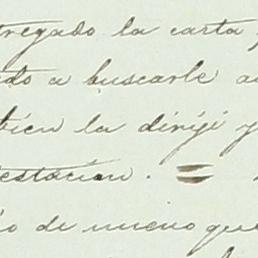 tregado la carta
ado a buscarle a
bien la dirigi y
estacion. =
o de nuevo que